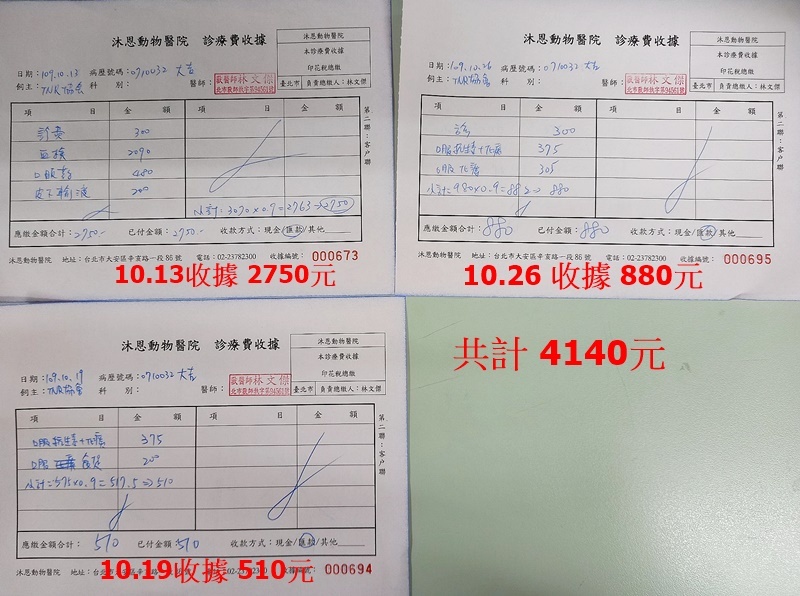 沐恩動物醫院 診療費收據
沐恩動物醫院
本診療費收據
印花稅總繳
臺北市 負責總繳人：林文傑
日期：109.10.13 病歷號碼：0710032 大吉
飼主：TNR協會 科 別： 醫師：
獸醫師林文傑
北市獸醫執字第94561號
項 目 金 額 項 目 金 額
診費 300
血檢 2090
口服藥 480
皮下輸液 200
小計：3070x0.9=2763⇒2750
應繳金額合計：2750.- 已付金額：2750.- 收款方式：現金/匯款/其他
第二聯：客戶聯
沐恩動物醫院 地址：台北市大安區辛亥路一段86號 電話：02-23782300 收據編號： 000673
10.13收據 2750元
沐恩動物醫院 診療費收據
沐恩動物醫院
本診療費收據
印花稅總繳
臺北市 負責總繳人：林文傑
日期：109.10.26 病歷號碼：0710032 大吉
飼主：TNR協會 科 別： 醫師：
獸醫師林文傑
北市獸醫執字第94561號
項 目 金 額 項 目 金 額
診 300
口服抗生素+化痰 375
口服化痰 305
小計=980x0.9=882⇒880
應繳金額合計：880 已付金額：880 收款方式：現金/匯款/其他
第二聯：客戶聯
沐恩動物醫院 地址：台北市大安區辛亥路一段86號 電話：02-23782300 收據編號： 000695
10.26 收據 880元
沐恩動物醫院 診療費收據
沐恩動物醫院
本診療費收據
印花稅總繳
臺北市 負責總繳人：林文傑
日期：109.10.19 病歷號碼：0710032 大吉
飼主：TNR協會 科 別： 醫師：
獸醫師林文傑
北市獸醫執字第94561號
項 目 金 額 項 目 金 額
口服抗生素+化痰 375
口服 200
小計=575x0.9=517.5⇒510
應繳金額合計：510 已付金額：510 收款方式：現金/匯款/其他
第二聯：客戶聯
沐恩動物醫院 地址：台北市大安區辛亥路一段86號 電話：02-23782300 收據編號： 000694
10.19收據 510元
共計 4140元